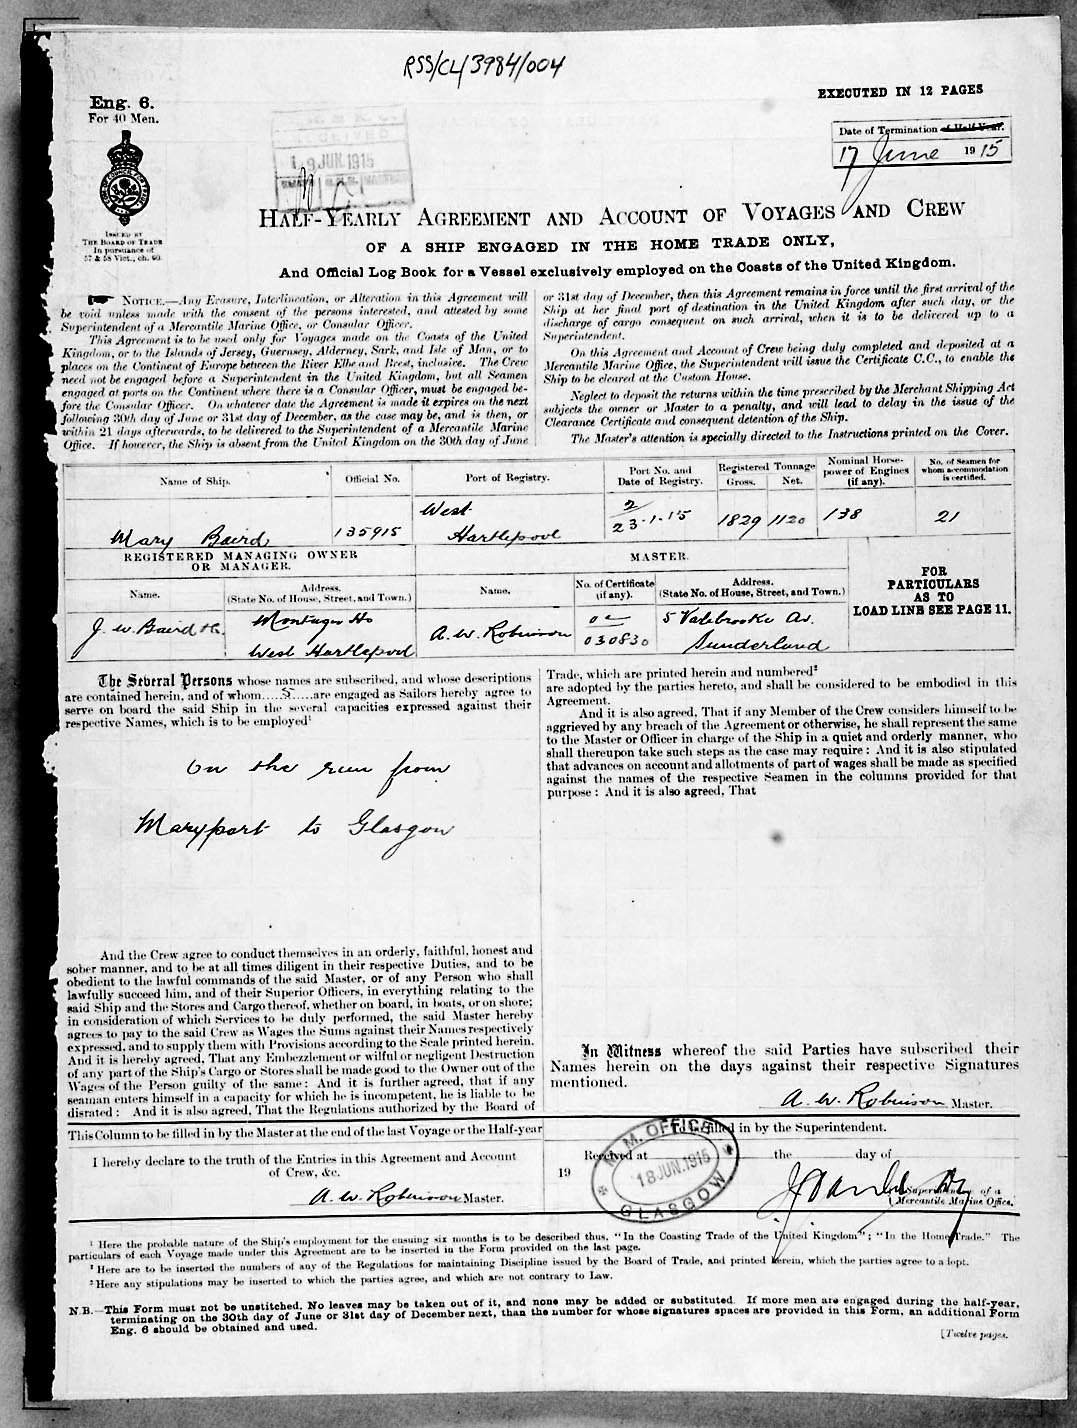 RSS/CL/3984/004
Eng. 6.
For 40 Men.
EXECUTED IN 12 PAGES
Date of Termination of Half Year.
17 June 1915
RECEIVED
19 JUN. 1915
ISSUED BY
THE BOARD OF TRADE
In pursuance of
57 & 58 Vict., ch. 60.
HALF-YEARLY AGREEMENT AND ACCOUNT OF VOYAGES AND CREW
OF A SHIP ENGAGED IN THE HOME TRADE ONLY,
And Official Log Book for a Vessel exclusively employed on the Coasts of the United Kingdom.
NOTICE.—Any Erasure, Interlineation, or Alteration in this Agreement will
be void unless made with the consent of the persons interested, and attested by some
Superintendent of a Mercantile Marine Office, or Consular Officer.
This Agreement is to be used only for Voyages made on the Coasts of the United
Kingdom, or to the Islands of Jersey, Guernsey, Alderney, Sark, and Isle of Man, or to
places on the Continent of Europe between the River Elbe and Brest, inclusive. The Crew
need not be engaged before a Superintendent in the United Kingdom, but all Seamen
engaged at ports on the Continent where there is a Consular Officer, must be engaged be-
fore the Consular Officer. On whatever date the Agreement is made it expires on the next
following 30th day of June or 31st day of December, as the case may be, and is then, or
within 21 days afterwards, to be delivered to the Superintendent of a Mercantile Marine
Office. If however, the Ship is absent from the United Kingdom on the 30th day of June
or 31st day of December, then this Agreement remains in force until the first arrival of the
Ship at her final port of destination in the United Kingdom after such day, or the
discharge of cargo consequent on such arrival, when it is to be delivered up to a
Superintendent.
On this Agreement and Account of Crew being duly completed and deposited at a
Mercantile Marine Office, the Superintendent will issue the Certificate C.C., to enable the
Ship to be cleared at the Custom House.
Neglect to deposit the returns within the time prescribed by the Merchant Shipping Act
subjects the owner or Master to a penalty, and will lead to delay in the issue of the
Clearance Certificate and consequent detention of the Ship.
The Master's attention is specially directed to the Instructions printed on the Cover.
Name of Ship. Official No. Port of Registry. Port No. and Date of Registry. Registered Tonnage Gross. Net. Nominal Horse-power of Engines (if any). No. of Seamen for whom accommodation is certified.
Mary Baird 135915 West Hartlepool 2/23.1.15 1829 1120 138 21
REGISTERED MANAGING OWNER OR MANAGER. MASTER.
Name. Address. (State No. of House, Street, and Town.) Name. No. of Certificate (if any). Address. (State No. of House, Street, and Town.)
FOR PARTICULARS AS TO LOAD LINE SEE PAGE 11.
J. W. Baird & Co. Montague Ho West Hartlepool A. W. Robinson 030830 5 Valebrooke Av. Sunderland
The Several Persons whose names are subscribed, and whose descriptions
are contained herein, and of whom....5....are engaged as Sailors hereby agree to
serve on board the said Ship in the several capacities expressed against their
respective Names, which is to be employed¹
On the run from
Maryport to Glasgow
And the Crew agree to conduct themselves in an orderly, faithful, honest and
sober manner, and to be at all times diligent in their respective Duties, and to be
obedient to the lawful commands of the said Master, or of any Person who shall
lawfully succeed him, and of their Superior Officers, in everything relating to the
said Ship and the Stores and Cargo thereof, whether on board, in boats, or on shore;
in consideration of which Services to be duly performed, the said Master hereby
agrees to pay to the said Crew as Wages the Sums against their Names respectively
expressed, and to supply them with Provisions according to the Scale printed herein.
And it is hereby agreed, That any Embezzlement or wilful or negligent Destruction
of any part of the Ship's Cargo or Stores shall be made good to the Owner out of the
Wages of the Person guilty of the same: And it is further agreed, that if any
seaman enters himself in a capacity for which he is incompetent, he is liable to be
disrated: And it is also agreed, That the Regulations authorized by the Board of
Trade, which are printed herein and numbered²
are adopted by the parties hereto, and shall be considered to be embodied in this
Agreement.
And it is also agreed, That if any Member of the Crew considers himself to be
aggrieved by any breach of the Agreement or otherwise, he shall represent the same
to the Master or Officer in charge of the Ship in a quiet and orderly manner, who
shall thereupon take such steps as the case may require: And it is also stipulated
that advances on account and allotments of part of wages shall be made as specified
against the names of the respective Seamen in the columns provided for that
purpose: And it is also agreed, That
In Witness whereof the said Parties have subscribed their
Names herein on the days against their respective Signatures
mentioned.
A. W. Robinson Master.
This Column to be filled in by the Master at the end of the last Voyage or the Half-year
I hereby declare to the truth of the Entries in this Agreement and Account
of Crew, &c.
A. W. Robinson Master.
To be filled in by the Superintendent.
Received at the day of
19
M. M. OFFICE
18 JUN. 1915
GLASGOW
Superintendent of a
Mercantile Marine Office.
¹ Here the probable nature of the Ship's employment for the ensuing six months is to be described thus, "In the Coasting Trade of the United Kingdom"; "In the Home Trade." The
particulars of each Voyage made under this Agreement are to be inserted in the Form provided on the last page.
² Here are to be inserted the numbers of any of the Regulations for maintaining Discipline issued by the Board of Trade, and printed herein, which the parties agree to adopt.
³ Here any stipulations may be inserted to which the parties agree, and which are not contrary to Law.
N.B.—This Form must not be unstitched. No leaves may be taken out of it, and none may be added or substituted. If more men are engaged during the half-year,
terminating on the 30th day of June or 31st day of December next, than the number for whose signatures spaces are provided in this Form, an additional Form
Eng. 6 should be obtained and used.
[Twelve pages.